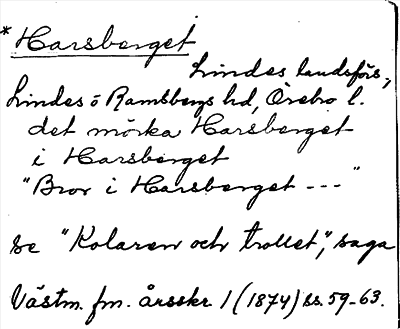 * Harsberget
Lindes landsförs.,
Lindes o Ramsbergs hd, Örebro l.
det mörka Harsberget
i Harsberget
"Bror i Harsberget ---"
se "Kolaren och trollet", saga
Västm. fm. årsskr 1 (1874) ss. 59-63.